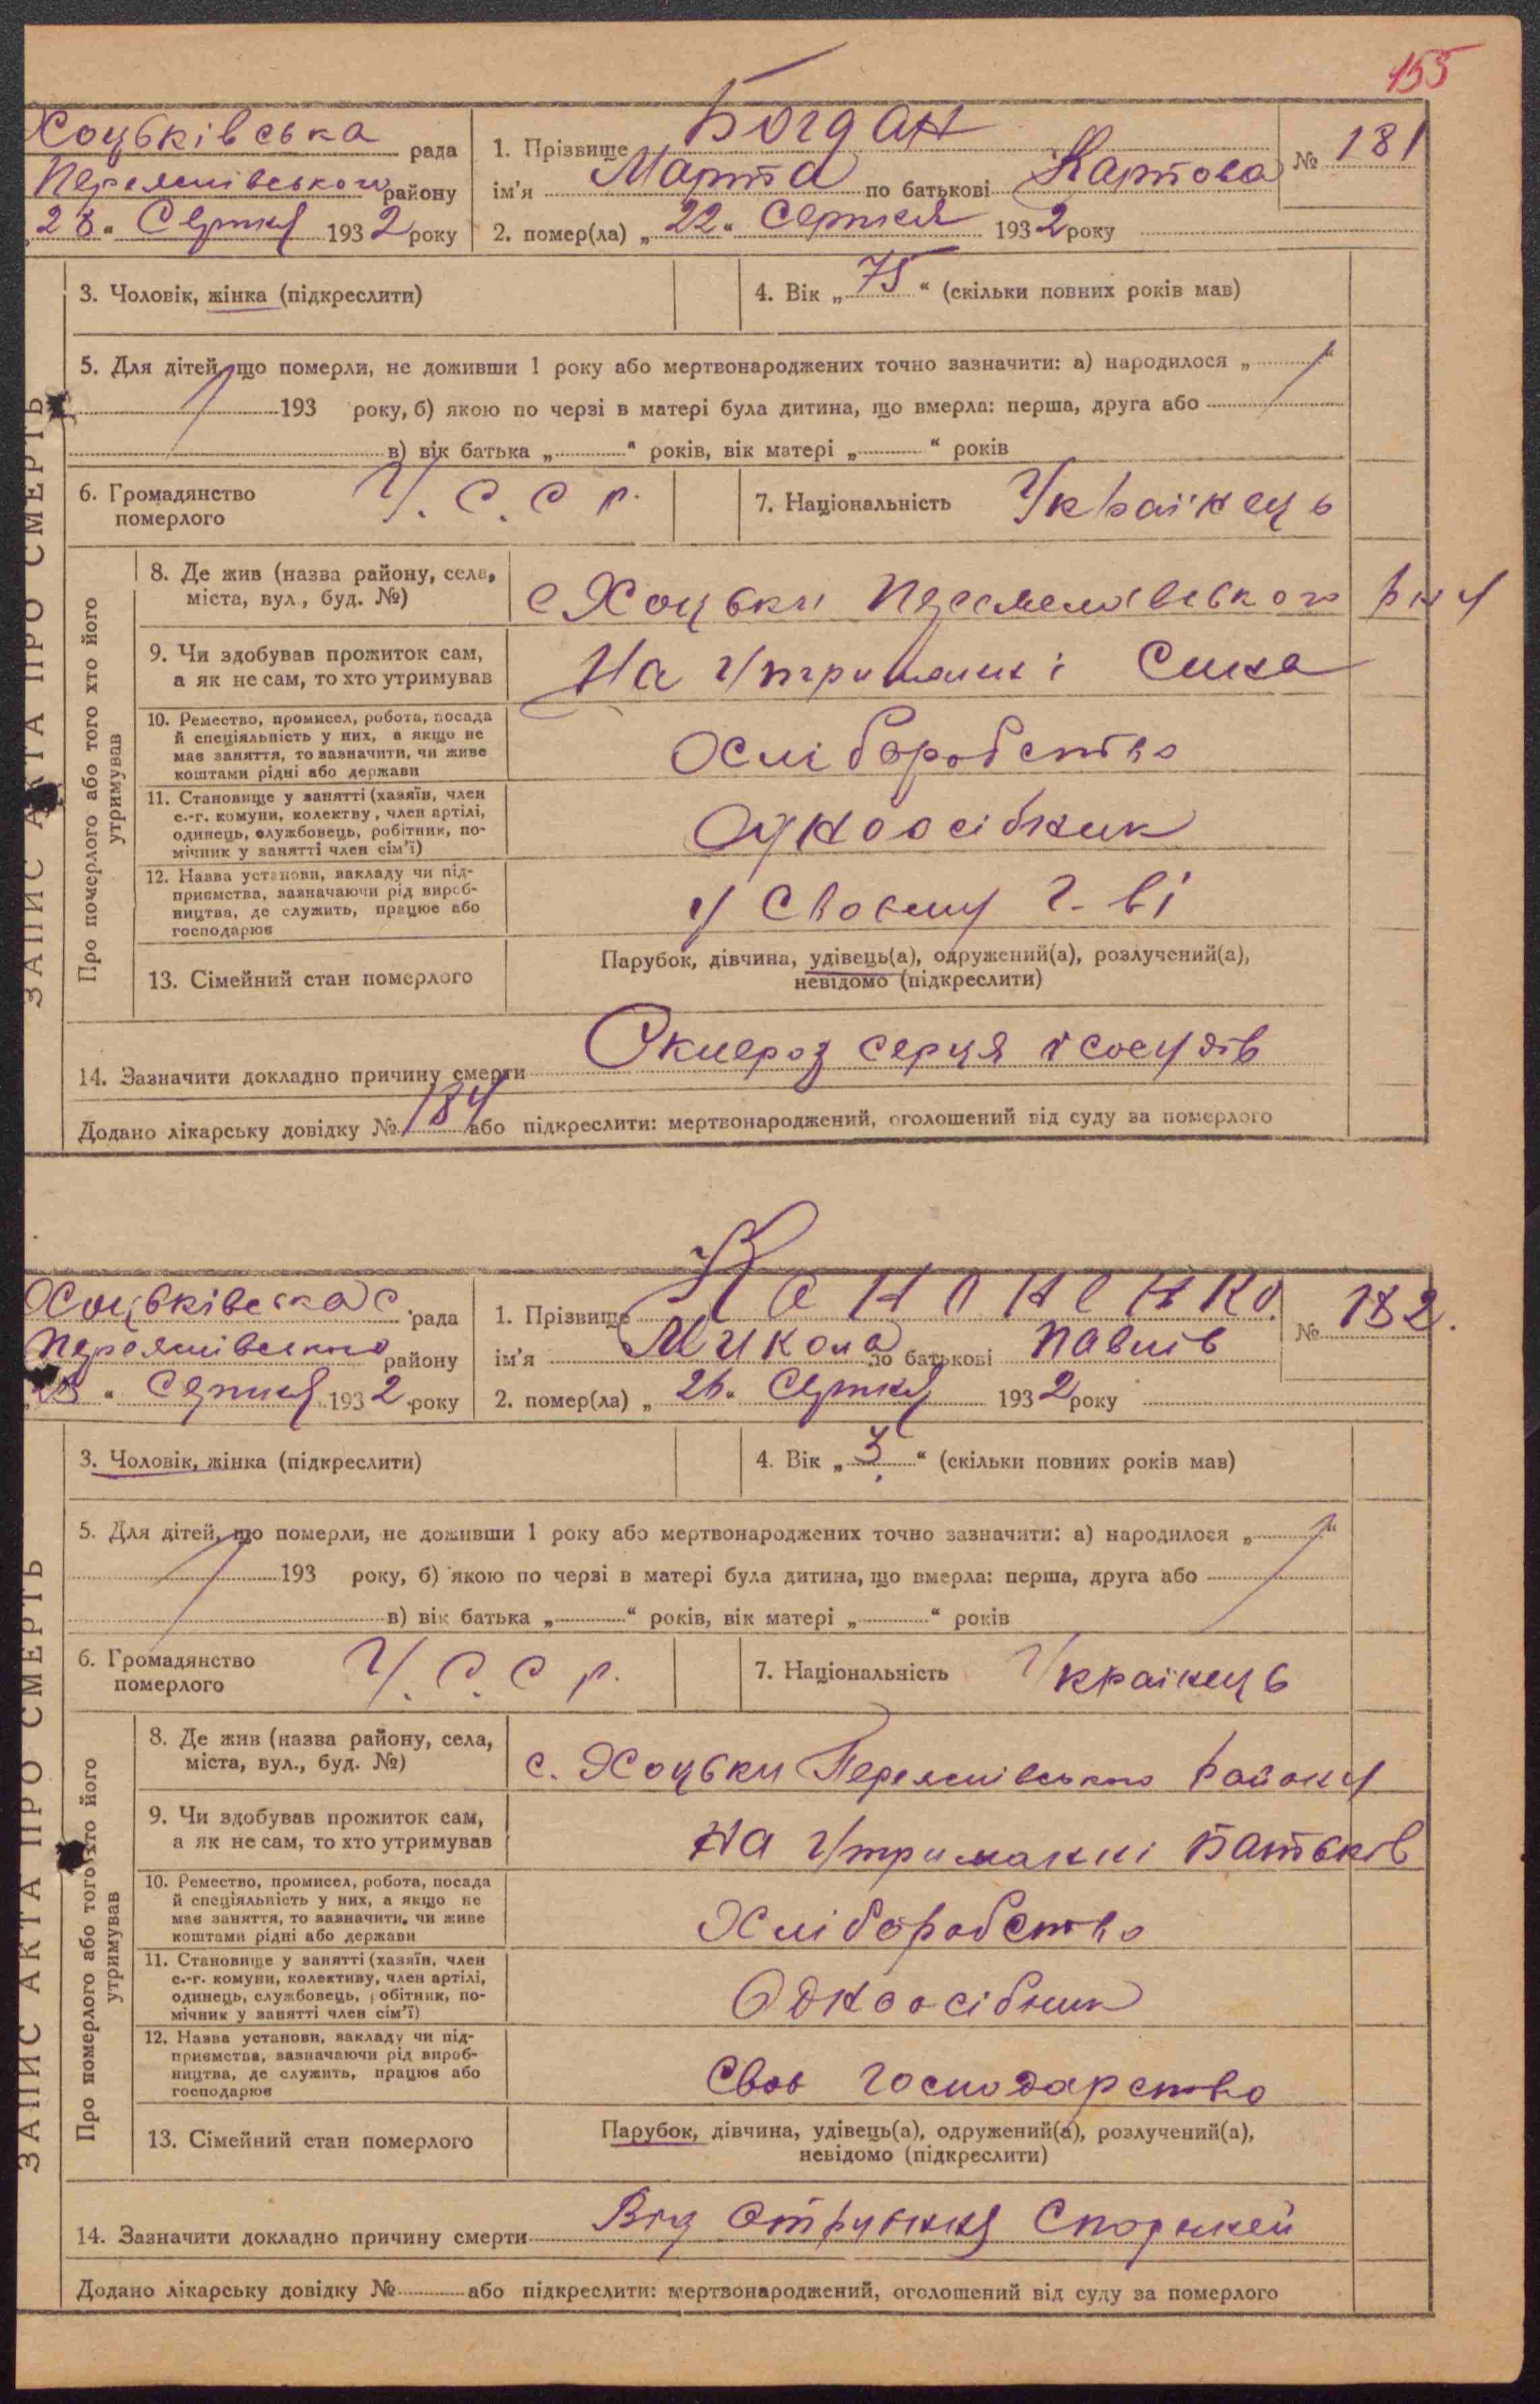 155
Хоцьківська рада
Переяслівського району
„28“ Серпня 1932 року
1. Прізвище Богдан
ім’я Марта по батькові Карпова
№ 181
2. помер(ла) „22“ Серпня 1932 року
ЗАПИС АКТА ПРО СМЕРТЬ
3. Чоловік, жінка (підкреслити)
4. Вік „75“ (скільки повних років мав)
5. Для дітей, що померли, не доживши 1 року або мертвонароджених точно зазначити: а) народилося „ “
193 року, б) якою по черзі в матері була дитина, що вмерла: перша, друга або
в) вік батька „ “ років, вік матері „ “ років
6. Громадянство
померлого
У. С. С р.
7. Національність Українець
Про померлого або того хто його
утримував
8. Де жив (назва району, села,
міста, вул., буд. №)
с Хоцьки Переяславського р-ну
9. Чи здобував прожиток сам,
а як не сам, то хто утримував
На Утриманні Сина
10. Ремество, промисел, робота, посада
й спеціяльність у них, а якщо не
має заняття, то зазначити, чи живе
коштами рідні або держави
Хліборобство
11. Становище у занятті (хазяїн, член
с.-г. комуни, колектву, член артілі,
одинець, службовець, робітник, по-
мічник у занятті член сім’ї)
Одноосібник
12. Назва установи, закладу чи під-
приємства, зазначаючи рід вироб-
ництва, де служить, працює або
господарює
у Своєму г-ві
13. Сімейний стан померлого
Парубок, дівчина, удівець(а), одружений(а), розлучений(а),
невідомо (підкреслити)
14. Зазначити докладно причину смерти Склероз серця і сосудів
Додано лікарську довідку № 184 або підкреслити: мертвонароджений, оголошений від суду за померлого
Хоцьківська с. рада
Переяслівського району
„28“ Серпня 1932 року
1. Прізвище Кононенко.
ім’я Микола по батькові Павлів
№ 182.
2. помер(ла) „26“ Серпня 1932 року
ЗАПИС АКТА ПРО СМЕРТЬ
3. Чоловік, жінка (підкреслити)
4. Вік „3“ (скільки повних років мав)
5. Для дітей, що померли, не доживши 1 року або мертвонароджених точно зазначити: а) народилося „ “
193 року, б) якою по черзі в матері була дитина, що вмерла: перша, друга або
в) вік батька „ “ років, вік матері „ “ років
6. Громадянство
померлого
У. С. С р.
7. Національність Українець
Про померлого або того хто його
утримував
8. Де жив (назва району, села,
міста, вул., буд. №)
с. Хоцьки Переяслівського району
9. Чи здобував прожиток сам,
а як не сам, то хто утримував
на Утриманні Батьків
10. Ремество, промисел, робота, посада
й спеціяльність у них, а якщо не
має заняття, то зазначити, чи живе
коштами рідні або держави
Хліборобство
11. Становище у занятті (хазяїн, член
с.-г. комуни, колективу, член артілі,
одинець, службовець, робітник, по-
мічник у занятті член сім’ї)
Одноосібник
12. Назва установи, закладу чи під-
приємства, зазначаючи рід вироб-
ництва, де служить, працює або
господарює
Своє Господарство
13. Сімейний стан померлого
Парубок, дівчина, удівець(а), одружений(а), розлучений(а),
невідомо (підкреслити)
14. Зазначити докладно причину смерти Від Отруєння
Додано лікарську довідку № або підкреслити: мертвонароджений, оголошений від суду за померлого